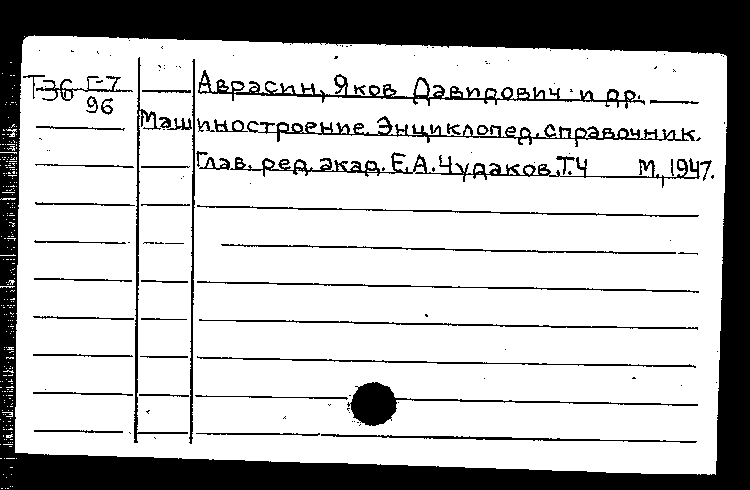 Т36 Г-7 Аврасин, Яков Давидович и др.
96
Машиностроение. Энциклопед. справочник.
Глав. ред. акад. Е.А. Чудаков. Т.4 М., 1947.